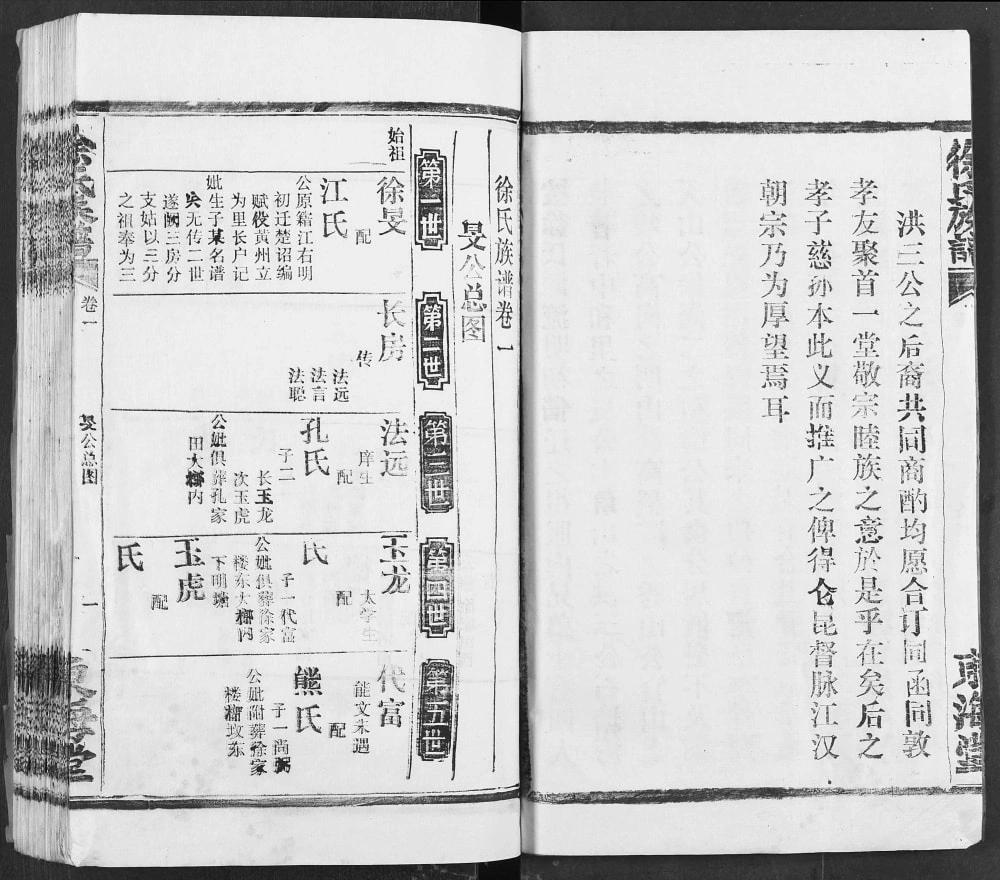 徐氏族谱
东海堂
洪三公之后裔共同商酌均愿合订同函同敦
孝友聚首一堂敬宗睦族之意於是乎在矣后之
孝子慈孙本此义而推广之俾得仑昆督脉江汉
朝宗乃为厚望焉耳
徐氏族谱卷一
旻公总图
第一世
第二世
第三世
第四世
第五世
始祖
徐旻
配
江氏
公原籍江右明
初迁楚诏编
赋役黄州立
为里长户记
妣生子某名谱
失无传二世
遂阙三房分
支姑以三分
之祖奉为三
长房
传
法远
法言
法聪
法远
庠生
配
孔氏
子二
长玉龙
次玉虎
公妣俱葬孔家
田大塝内
玉龙
太学生
配
氏
子一代富
公妣俱葬徐家
楼东大塝内
下明塘
玉虎
配
氏
代富
能文未遇
配
熊氏
子一尚弼
公妣附葬徐家
楼塝坟东
卷一
旻公总图
一